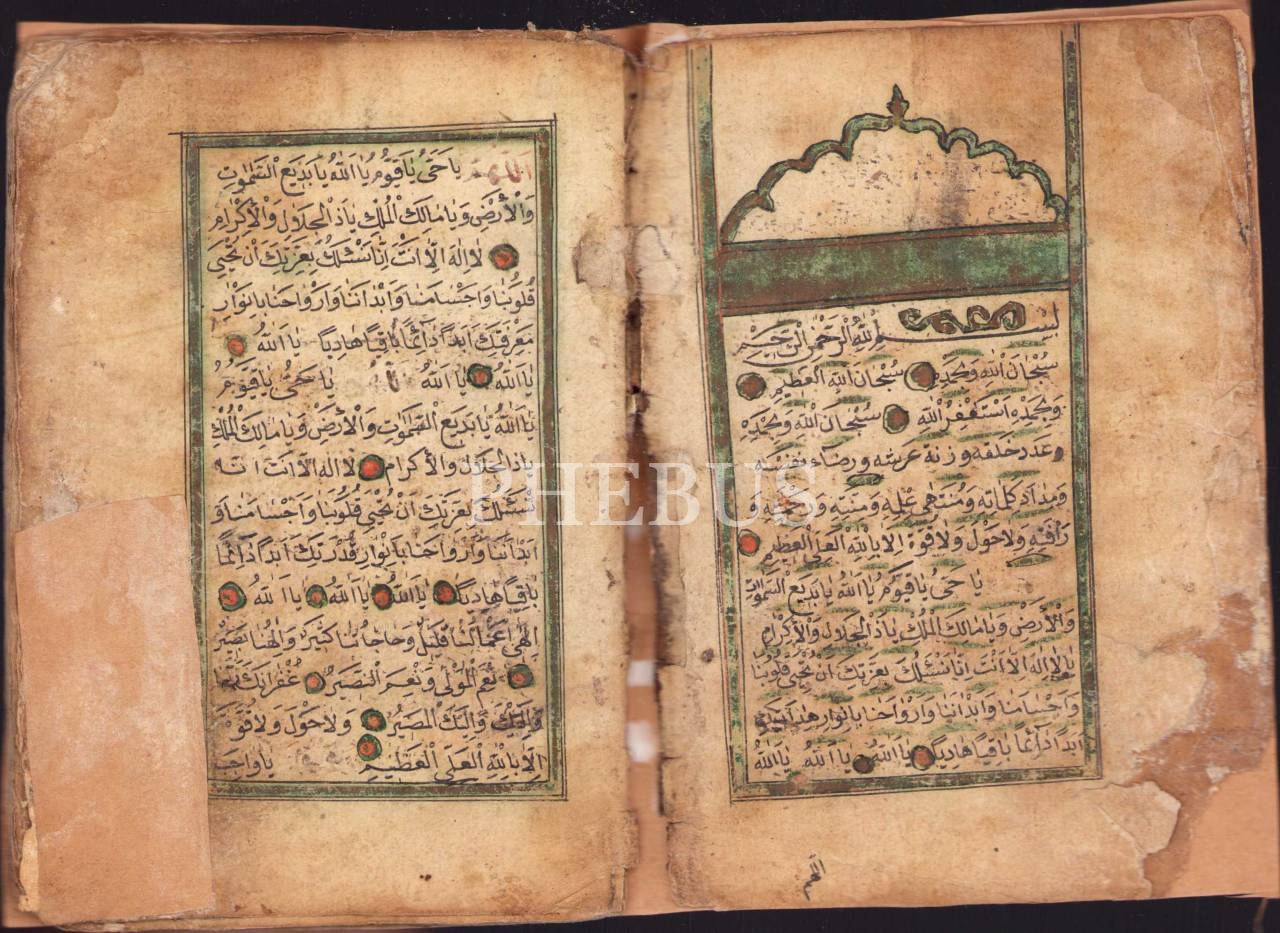 بِسْمِ اللهِ الرَّحْمٰنِ الرَّحِيْمِ
سُبْحَانَ اللهِ وَبِحَمْدِهِ سُبْحَانَ اللهِ الْعَظِيْمِ
وَبِحَمْدِهِ اَسْتَغْفِرُ اللهَ سُبْحَانَ اللهِ وَبِحَمْدِهِ
عَدَدَ خَلْقِهِ وَزِنَةَ عَرْشِهِ وَرِضَاءَ نَفْسِهِ
وَمِدَادَ كَلِمَاتِهِ وَمُنْتَهٰى عِلْمِهِ وَ
وَلَا حَوْلَ وَلَا قُوَّةَ اِلَّا بِاللهِ الْعَلِيِّ الْعَظِيْمِ
يَا حَيُّ يَا قَيُّوْمُ يَا اَللهُ يَا بَدِيْعَ السَّمٰوَاتِ
وَالْاَرْضِ وَيَا مَالِكَ الْمُلْكِ يَاذَ الْجَلَالِ وَالْاِكْرَامِ
يَا لَا اِلٰهَ اِلَّا اَنْتَ اِنَّا نَسْئَلُكَ بِعِزَّتِكَ اَنْ تُحْيِيَ قُلُوْبَنَا
وَاَجْسَامَنَا وَاَبْدَانَنَا وَاَرْوَاحَنَا بِاَنْوَارِ
اَبَدًا دَائِمًا بَاقِيًا هَادِيًا يَا اَللهُ يَا اَللهُ يَا اَللهُ
اللهم
يَا حَيُّ يَا قَيُّوْمُ يَا اَللهُ يَا بَدِيْعَ السَّمٰوٰتِ
وَالْاَرْضِ وَيَا مَالِكَ الْمُلْكِ يَاذَ الْجَلَالِ وَالْاِكْرَامِ
لَا اِلٰهَ اِلَّا اَنْتَ اِنَّا نَسْئَلُكَ بِعِزَّتِكَ اَنْ تُحْيِيَ
قُلُوْبَنَا وَاَجْسَامَنَا وَاَبْدَانَنَا وَاَرْوَاحَنَا بِاَنْوَارِ
مَعْرِفَتِكَ اَبَدًا دَائِمًا بَاقِيًا هَادِيًا يَا اَللهُ
يَا اَللهُ يَا اَللهُ يَا حَيُّ يَا قَيُّوْمُ
يَا اَللهُ يَا بَدِيْعَ السَّمٰوٰتِ وَالْاَرْضِ وَيَا مَالِكَ الْمُلْكِ
يَاذَ الْجَلَالِ وَالْاِكْرَامِ لَا اِلٰهَ اِلَّا اَنْتَ
نَسْئَلُكَ بِعِزَّتِكَ اَنْ تُحْيِيَ قُلُوْبَنَا وَاَجْسَامَنَا وَ
اَبْدَانَنَا وَاَرْوَاحَنَا بِاَنْوَارِ قُدْرَتِكَ اَبَدًا دَائِمًا
بَاقِيًا هَادِيًا يَا اَللهُ يَا اَللهُ يَا اَللهُ
اِلٰهِي قَلِيْلٌ وَحَاجَاتُنَا كَثِيْرٌ وَاِلٰهُنَا بَصِيْرٌ
نِعْمَ الْمَوْلٰى وَنِعْمَ النَّصِيْرُ غُفْرَانَكَ رَبَّنَا
وَاِلَيْكَ الْمَصِيْرُ وَلَا حَوْلَ وَلَا قُوَّةَ
اِلَّا بِاللهِ الْعَلِيِّ الْعَظِيْمِ
PHEBUS